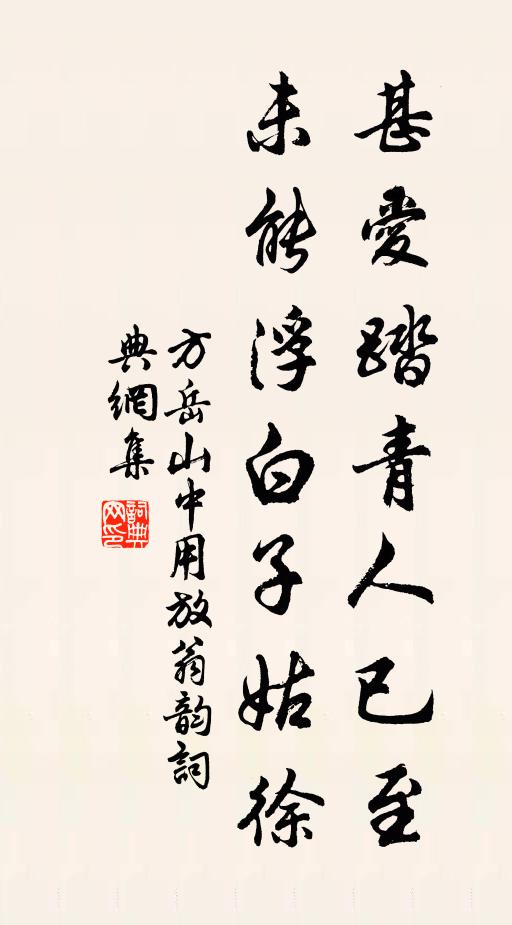 甚愛踏青人已至
未能浮白子姑徐
方岳山中用放翁韵詞
典網集
詞典网印